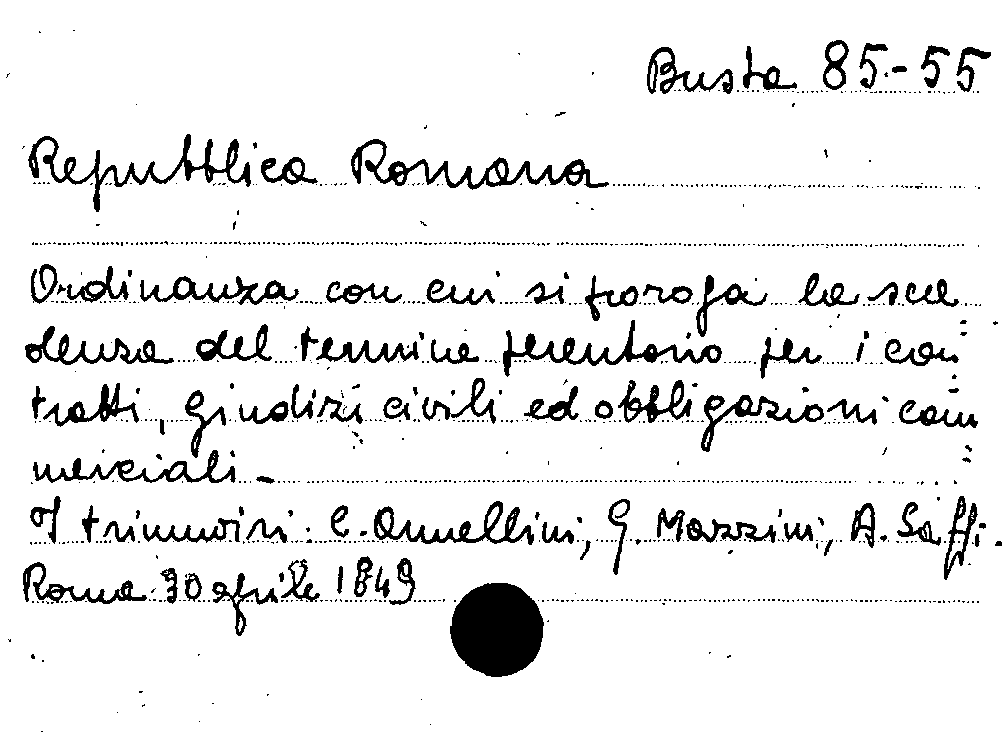 Busta 85-55
Repubblica Romana
Ordinanza con cui si proroga la sca
denza del termine perentorio per i con
tratti, giudizi civili ed obbligazioni com
merciali -
I triumviri: C. Armellini, G. Mazzini, A. Saffi.
Roma 30 aprile 1849